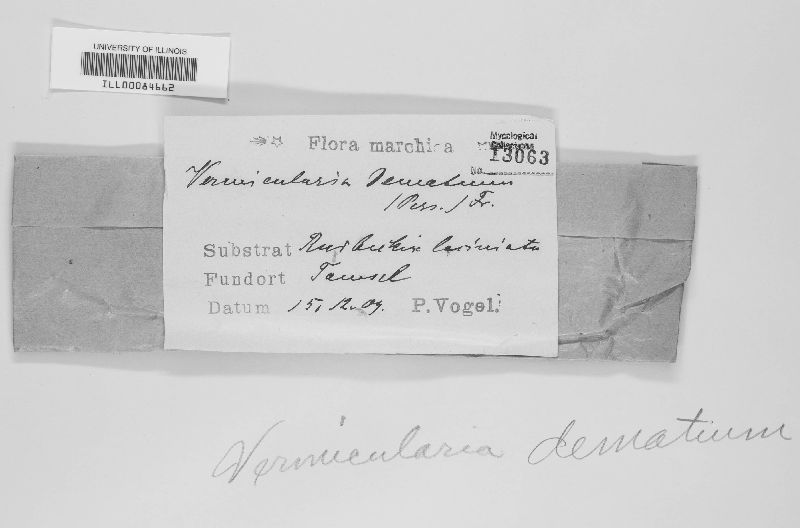 UNIVERSITY OF ILLINOIS
ILL00084662
Flora marchica
Mycological
Collections
No. 13063
Vermicularia Dematium
(Pers.) Fr.
Substrat Rudbeckia laciniata
Fundort Tamsel
Datum 15.12.09. P. Vogel.
Vermicularia dematium